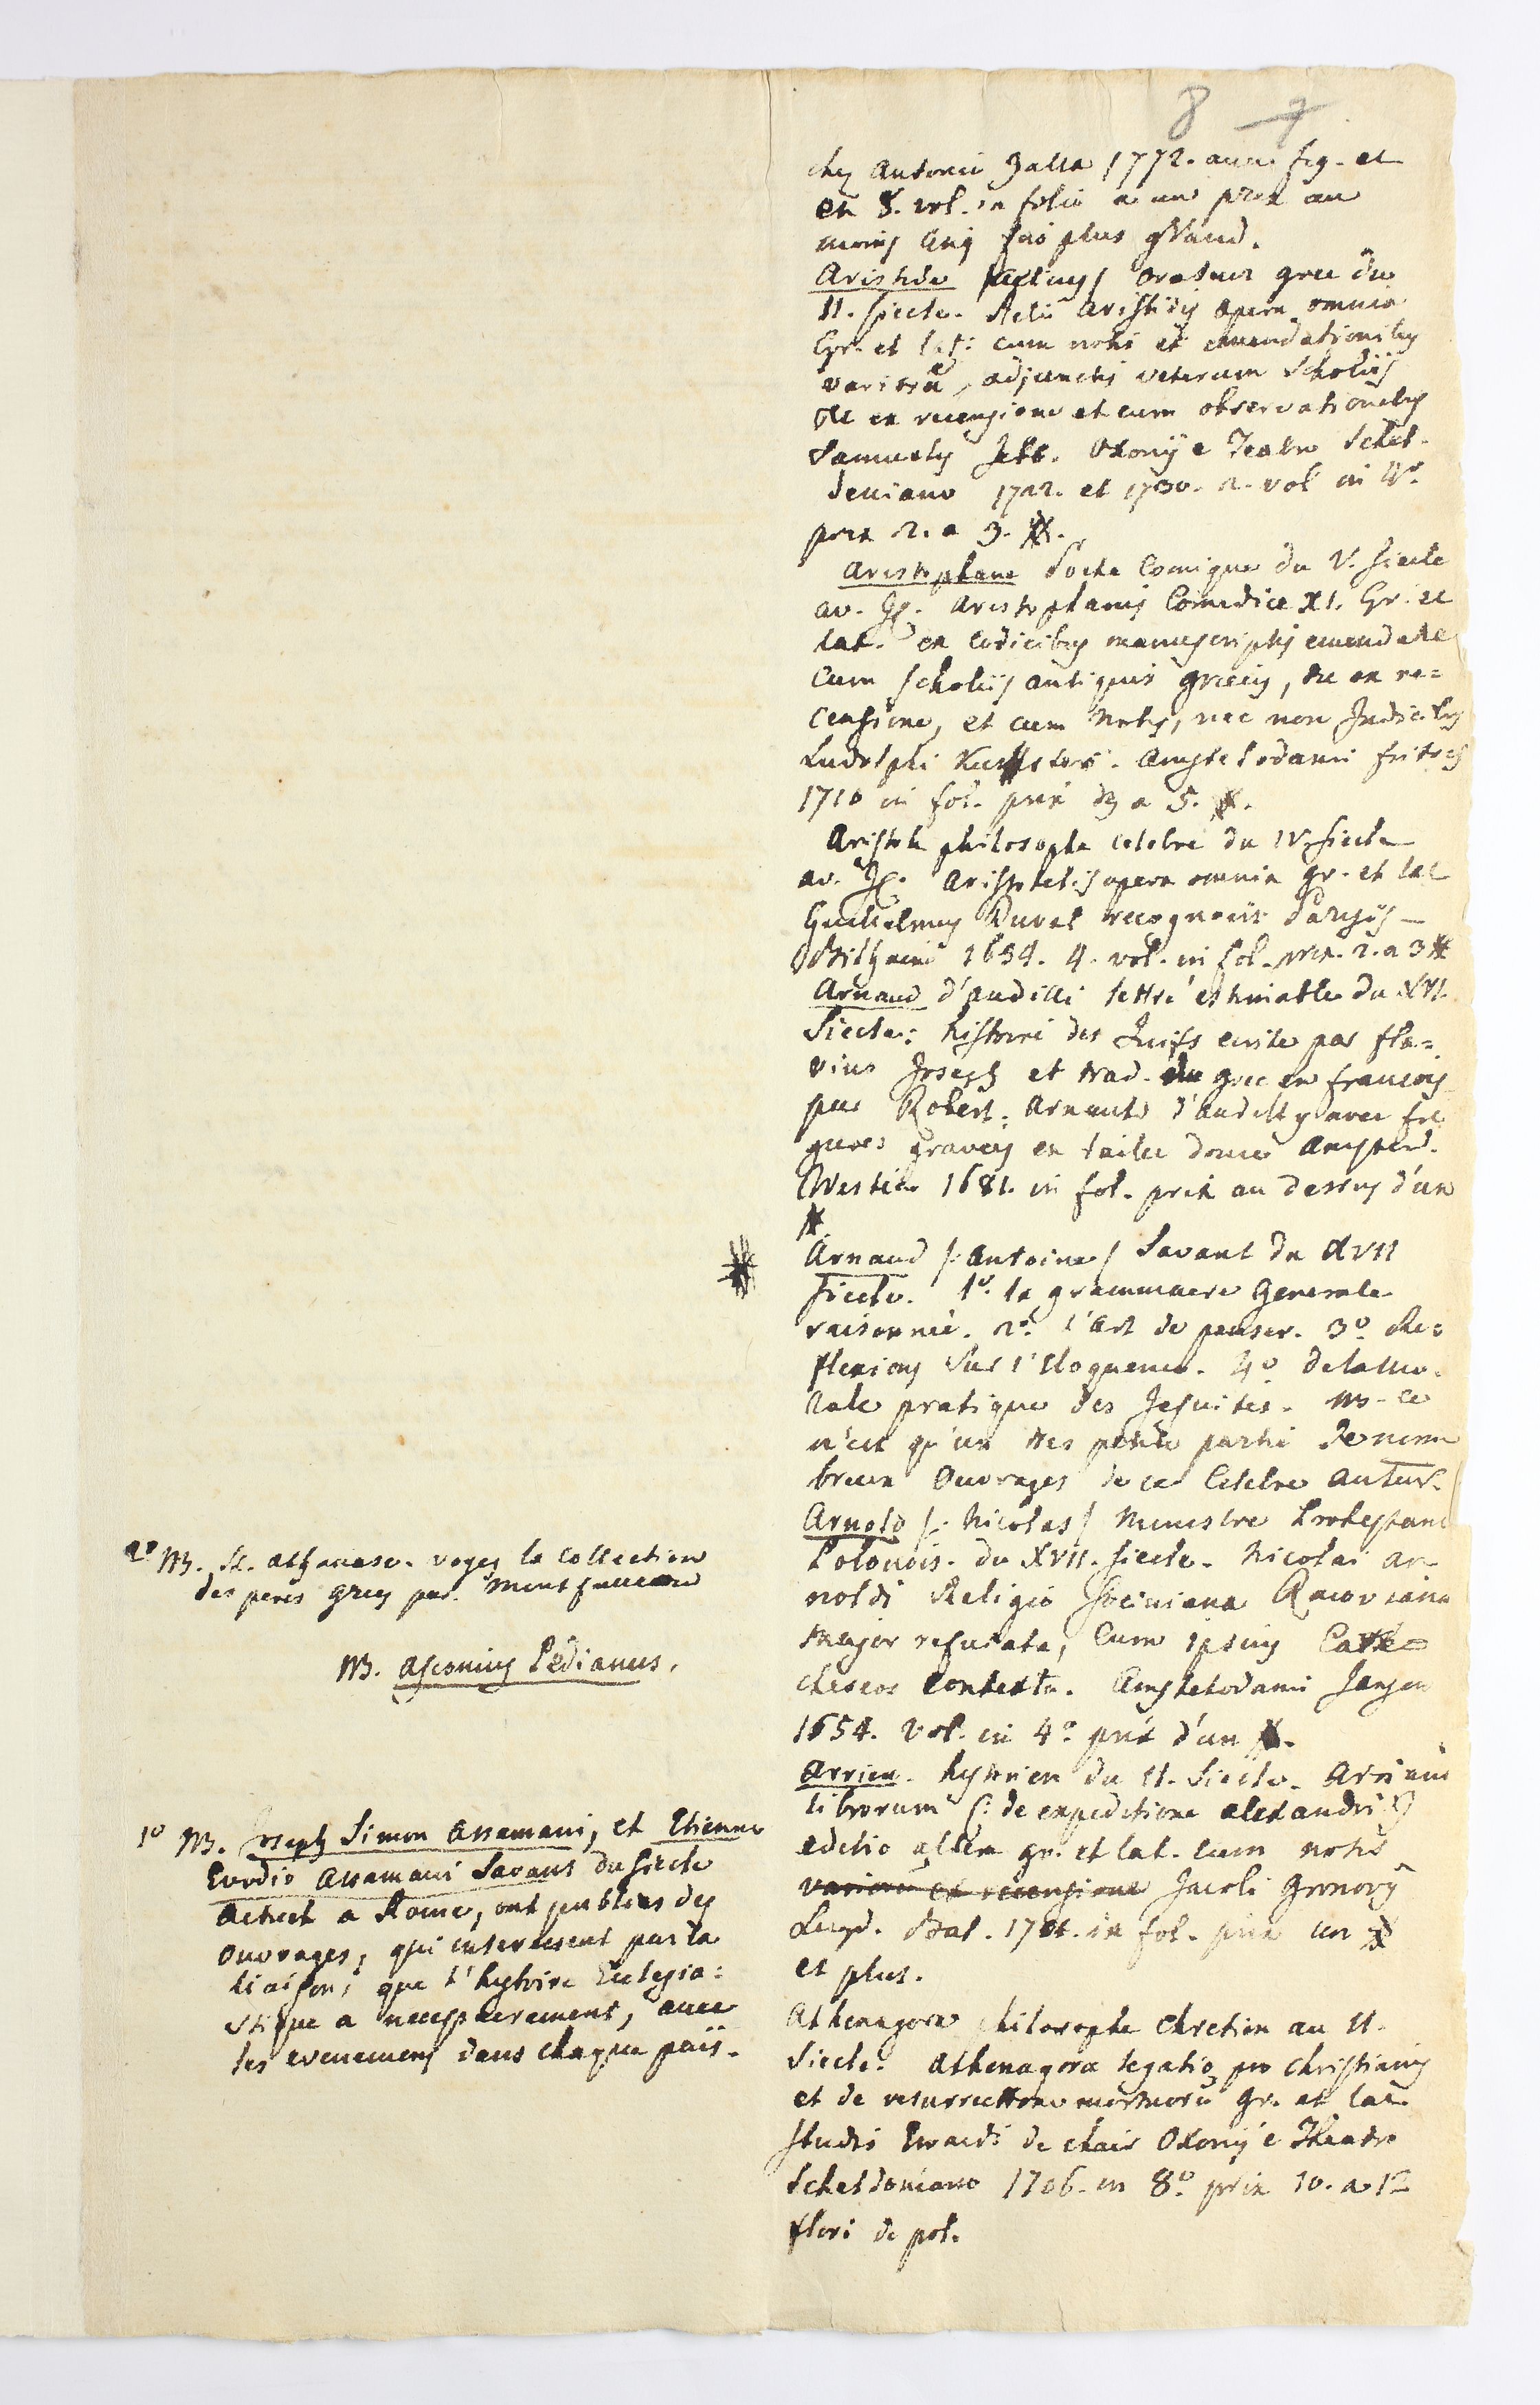 8 7
chez Antonio Zatta 1772. avec fig. et
en 8. vol. in folio a un prix au
moins cinq fois plus grand.
Aristide /Aelius/ Orateur grec du
II. siecle. Aelii Aristidis opera omnia
Gr. et lat: cum notis et emendationibus
variorũ, adjunctis veterum Scholiis
&c ex recensione et cum observationibus
Samuelis Jebb. Oxonij e Teatro Schel-
deniano 1722. et 1730. 2. vol in 4º
prix 2. a 3. #.
Aristophane Poete Comique du V. siecle
av. JC. Aristophanis Comedice XI. Gr. et
lat. ex codicibus manuscriptis emendatae
cum scholiis antiquis graecis, &c ex re=
censione, et cum notis, nec non Indicibus
Ludolphi Kusteri. Amstelodami fritsch
1710 in fol. prix 3 a 5. #.
Aristote philosophe celebre du IV. siecle
av. JC. Aristotelis opera omnia gr. et lat
Guilielmus Duval recognovit Parisijs
Billaine 1654. 4. vol. in fol. prix. 2. a 3 #
Arnaud d'Andilli lettré estimable du XVII.
Siecle: histoire des Juifs ecrite par Fla=
vius Joseph et trad. du grec en francois
par Robert. Arnauld d'Andilly avec fi
gures gravees en taille douce Amsterd.
Westein 1681. in fol. prix au dessus d'un
#
Arnaud /: Antoine / Savant du XVII
siecle. 1º. la grammaire generale
raisonnée. 2º. l'Art de penser. 3º. Re=
flexions sur l'Eloquence. 4º de la Mo-
rale pratique des Jesuites. NB. ce
n'est qu'un tres petite partie de nom
breux Ouvrages de ce Celebre Auteur.
Arnold /: Nicolas / Ministre Protestant
Polonois. du XVII. siecle. Nicolai Ar-
noldi Religio Sociniana Racoviana
major refutata, cum ipsius Cate=
cheseos contextu. Amstelodami Jansen
1654. vol. in 4º prix d'un #.
Arrien. hystorien du II. Siecle. Arriani
librorum /: de expeditione Alexandri :/
editio altera gr. et lat. cum notis
variorum ex recensione Jacobi Gronovij
Lugd. Bat. 1704. in fol. prix un #
et plus.
Athenagore philosophe chretien au II.
Siecle. Athenagora legatio pro christianis
et de resurrectione mortuorũ gr. et lat.
studio Ewardi de chair Oxonij e Theatro
Scheldoniano 1706. in 8º. prix 10. a 12
flori de pol.
2º NB. St. Athanase. voyez la collection
des peres grecs par. Montfaucon
NB. Asconius Pedianus.
1º NB. Joseph Simon Assemani, et Etienne
Evodio Assamani Savans du siecle
actuel a Rome, ont publies des
Ouvrages, qui interessent par la
liaison, que l'hystoire Eclesia=
stique a necessairement, avec
les evenemens dans chaque païs.